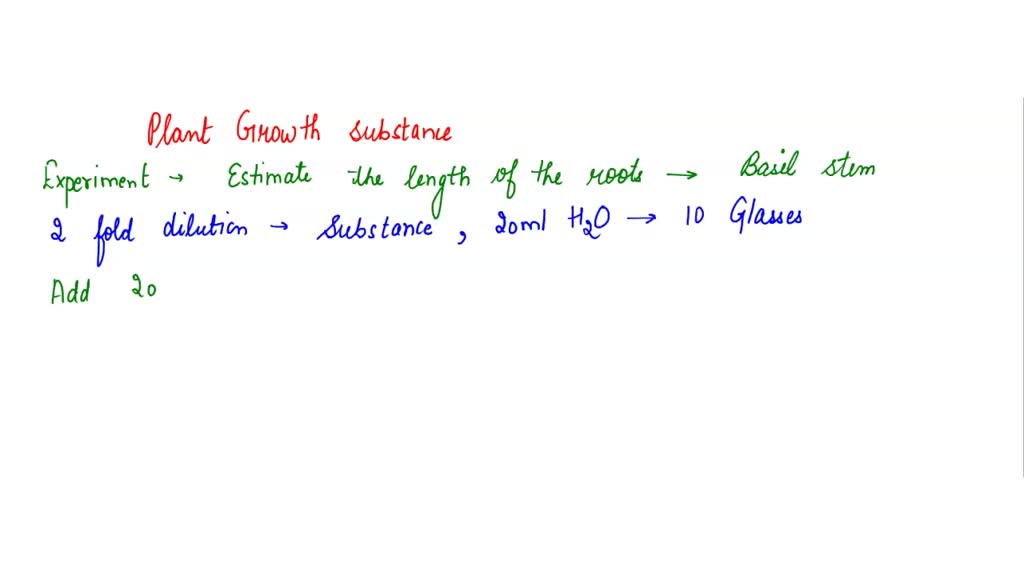 Plant Growth substance
Experiment → Estimate the length of the roots → Basil stem
2 fold dilution → Substance, 20ml H₂O → 10 Glasses
Add 20